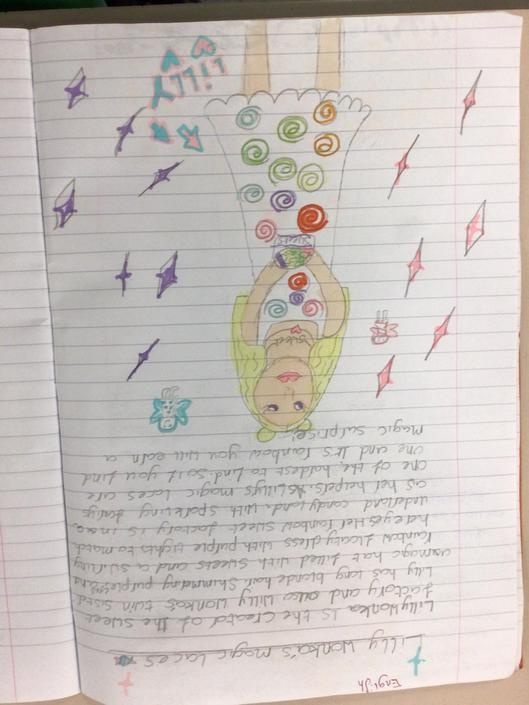 English
Lilly Wonka's magic laces
Lilly Wonka is the creator of the sweet
factory and also Willy Wonka's twin
Lilly has long blonde hair, purple
magic hat filled with sweets and a
rainbow floaty dress with purple tights to match
her eyes Her rainbow sweet factory is in
underland candy land. with
as her helpers. Lillys magic laces are
one of the hardest to find. so if you find
one and its rainbow you will earn a
magic surprise!
sweet
sweets
Lilly